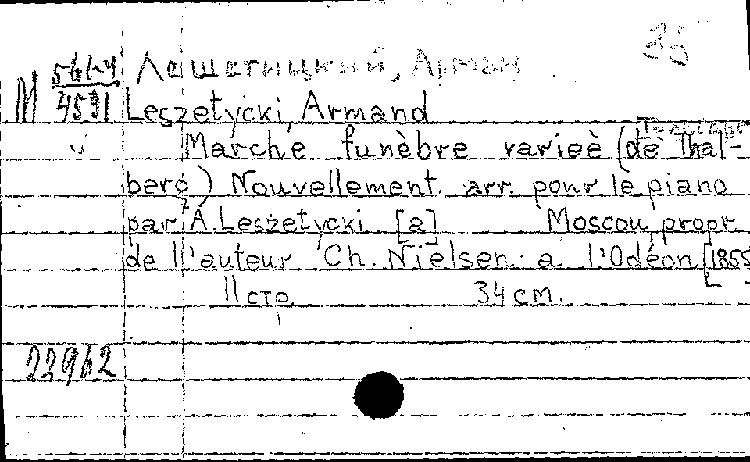 35
M 5664 Лешетицкий, Арман
4591 Leszetycki, Armand
Marche funèbre varieè (de Thal-
berg) Nouvellement arr. pour le piano
par A. Leszetycki [a] Moscou, propr.
de l'auteur Ch. Nielsen a l'Odéon [1855
11 стр. 34 см.
22962